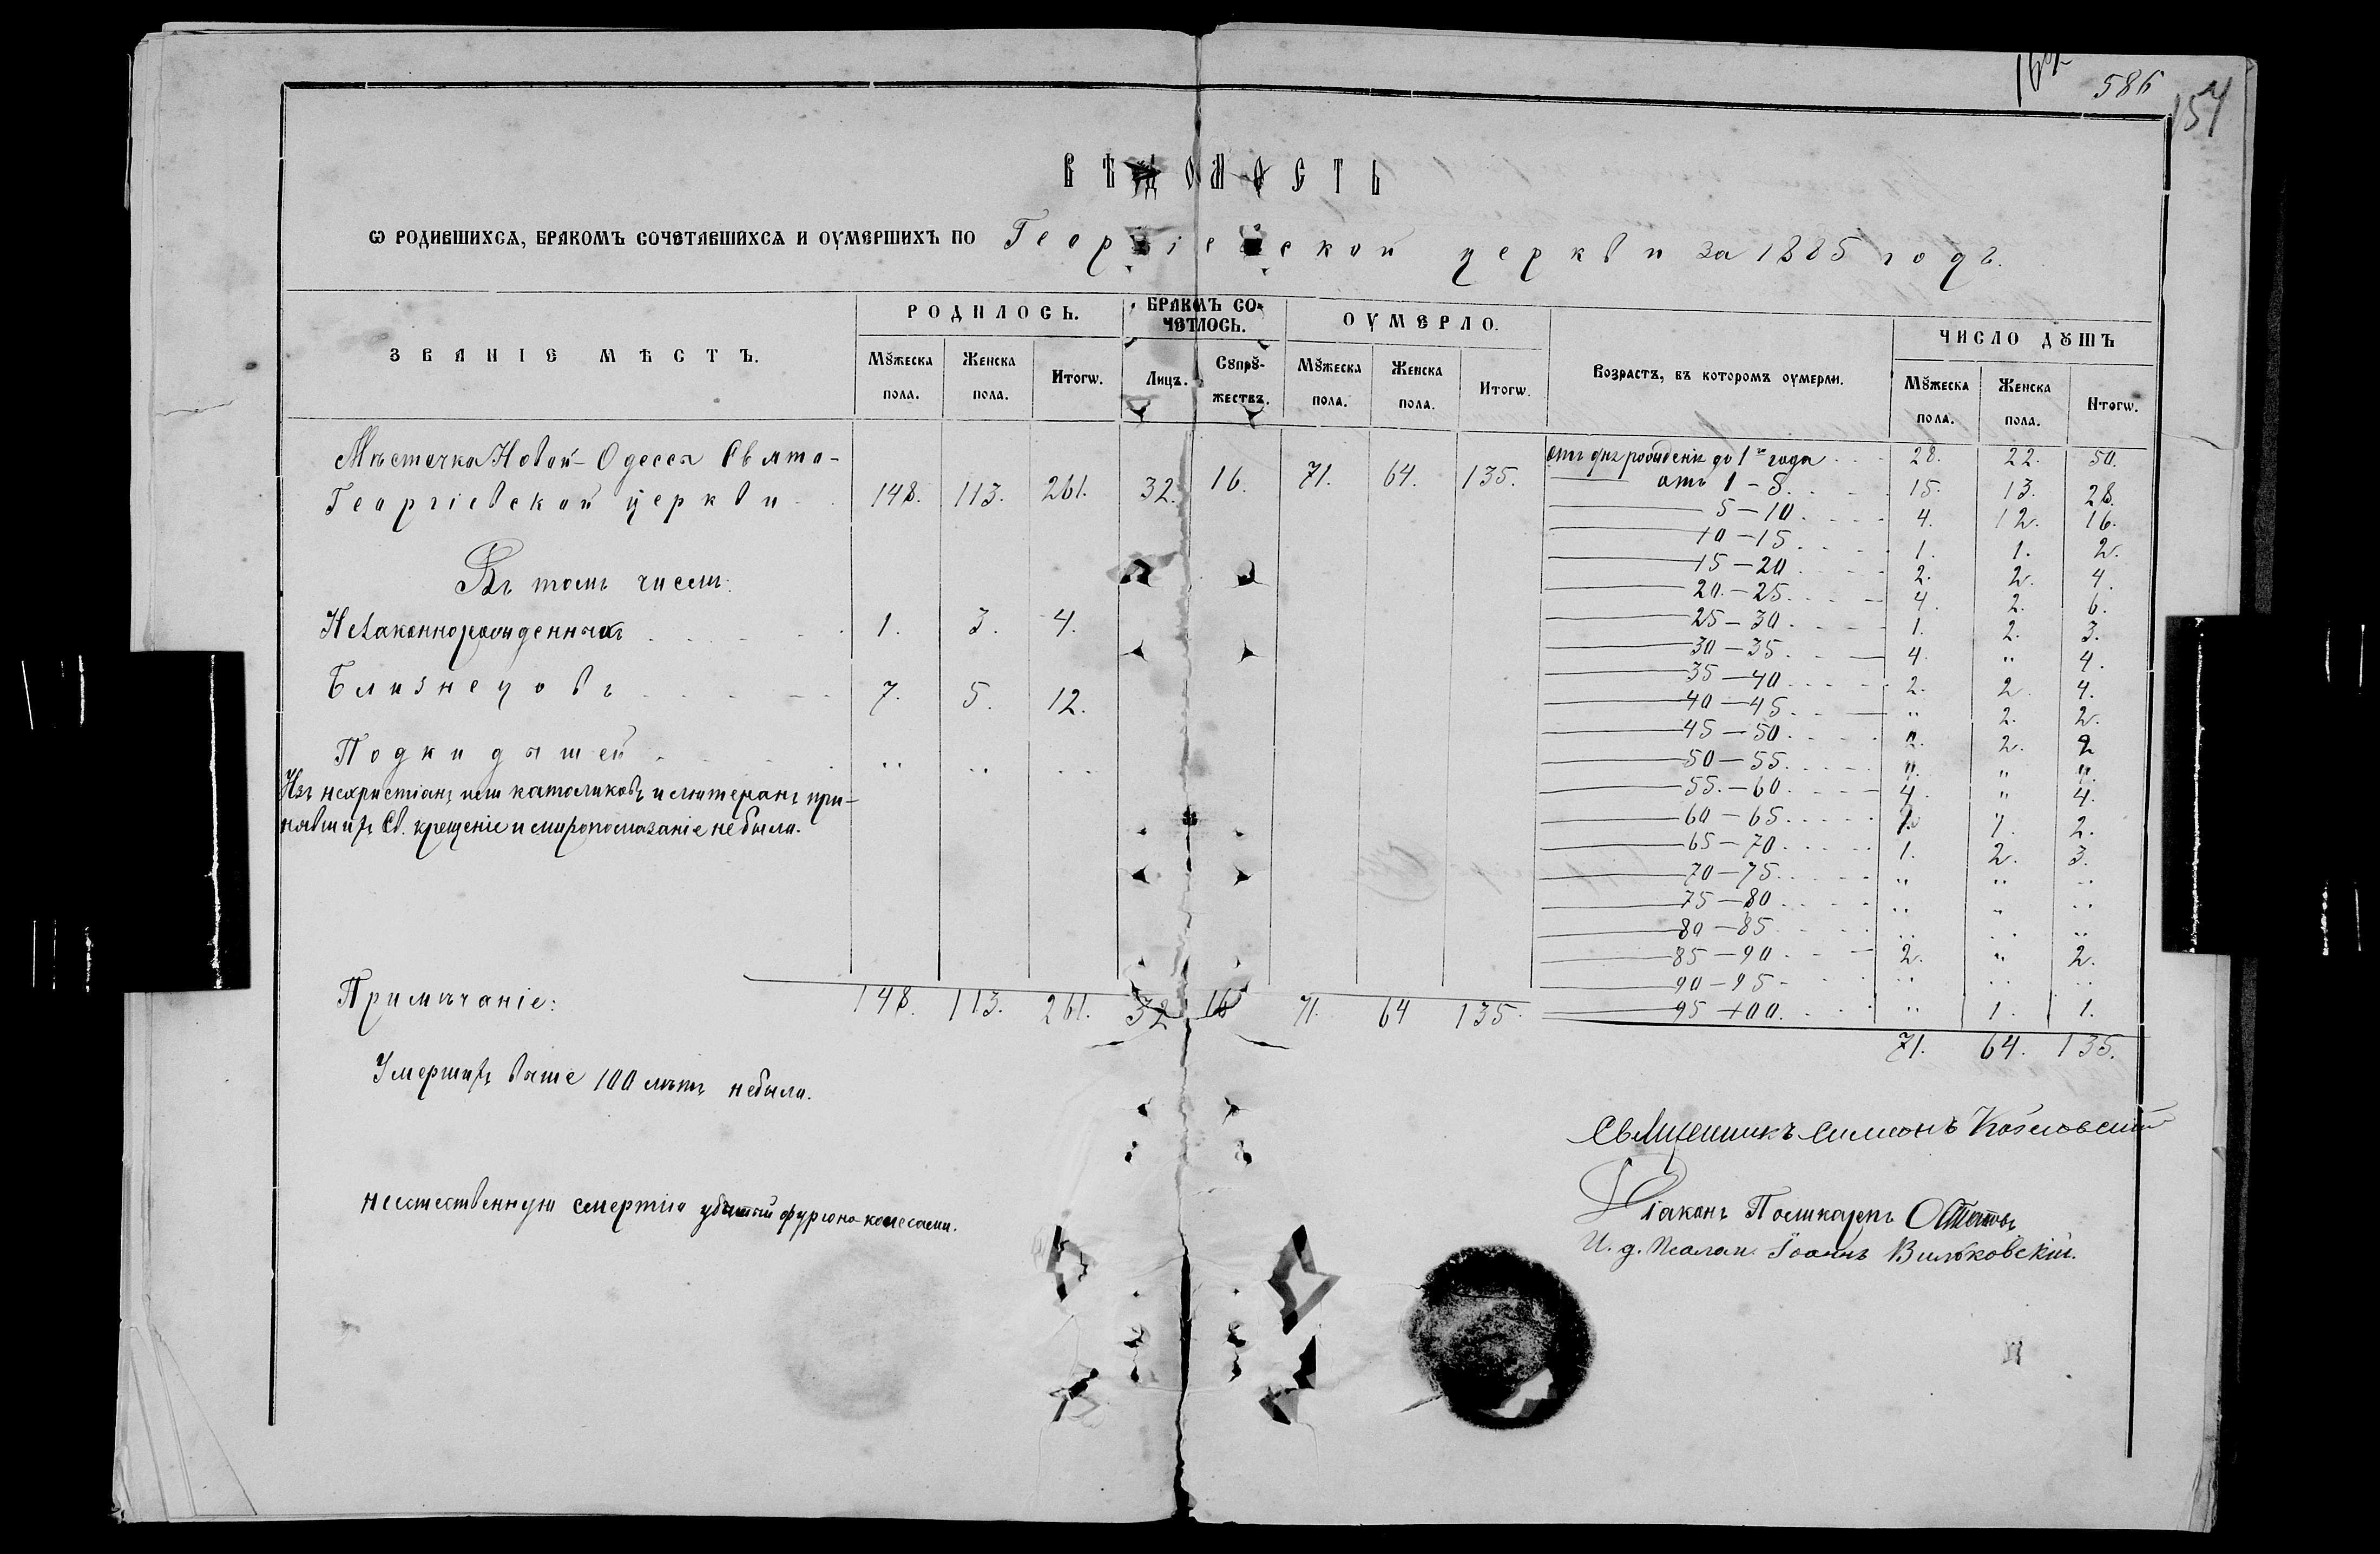 586
154
ВѢДОМОСТЬ
Ѡ РОДИВШИХСѦ, БРАКОМЪ СОЧЕТАВШИХСѦ И ОУМЕРШИХЪ ПО Георгіевской церкви за 1885 годъ.
ЗВАНІЕ МѢСТЪ. РОДИЛОСЬ. БРАКОМЪ СО- ОУМЕРЛО. Возрастъ, въ которомъ оумерли. ЧИСЛО ДꙊШЪ
ЧЕТЛОСЬ.
Мꙋжеска Женска Итогѡ. Лицъ. Сꙋпрꙋ- Мꙋжеска Женска Итогѡ. Мꙋжеска Женска Итогѡ.
пола. пола. жествъ. пола. пола. пола. пола.
Мѣстечка Новой-Одессы Свято-
Георгіевской церкви 148. 113. 261. 32. 16. 71. 64. 135.
отъ дня рожденія до 1го года 28. 22. 50.
отъ 1-5. 15. 13. 28.
5-10. 4. 12. 16.
10-15. 1. 1. 2.
15-20 2. 2. 4.
20.-25. 4. 2. 6.
25-30. 1. 2. 3.
30-35. 4. " 4.
35-40. 2. 2. 4.
40-45. " 2. 2.
45-50. 2. 2
50-55. "
55.-60. 4. " 4.
60-65. 1. 1. 2.
65-70. 1. 2. 3.
70-75. " " "
75-80. " " "
80-85. " " "
85-90. 2. " 2.
90-95- " " "
95-100. " 1. 1.
71. 64. 135.
Въ томъ числѣ:
Незаконнорожденныхъ 1. 3. 4.
Близнецовъ 7. 5. 12.
Подкидышей " " "
Изъ нехристіанъ или католиковъ и лютеранъ при-
нявшихъ Св. крещеніе и миропомазаніе небыло.
148. 113. 261. 32 16 71. 64 135.
Примѣчаніе:
Умершихъ выше 100 лѣтъ небыло.
неестественную смертію убитый фургона колесами.
Священникъ Симеонъ Козловскій
Діаконъ Поликарпъ
И. д. Псалом. Іоаннъ Вильковскій.